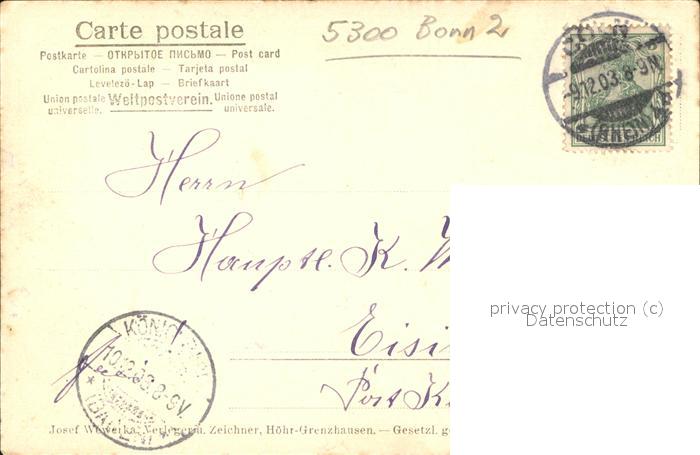 Carte postale
5300 Bonn 2
Postkarte — ОТКРЫТОЕ ПИСЬМО — Post card
Cartolina postale — Tarjeta postal
Levelező-Lap — Briefkaart
Union postale universelle. Weltpostverein. Unione postal universale.
-9.12.03.8-9N.
(RHEIN)
Herrn
Hauptl. K.
privacy protection (c)
Datenschutz
Eisi
Post K
10.12.03.8-9V.
Josef Verleger u. Zeichner, Höhr-Grenzhausen. — Gesetzl. g